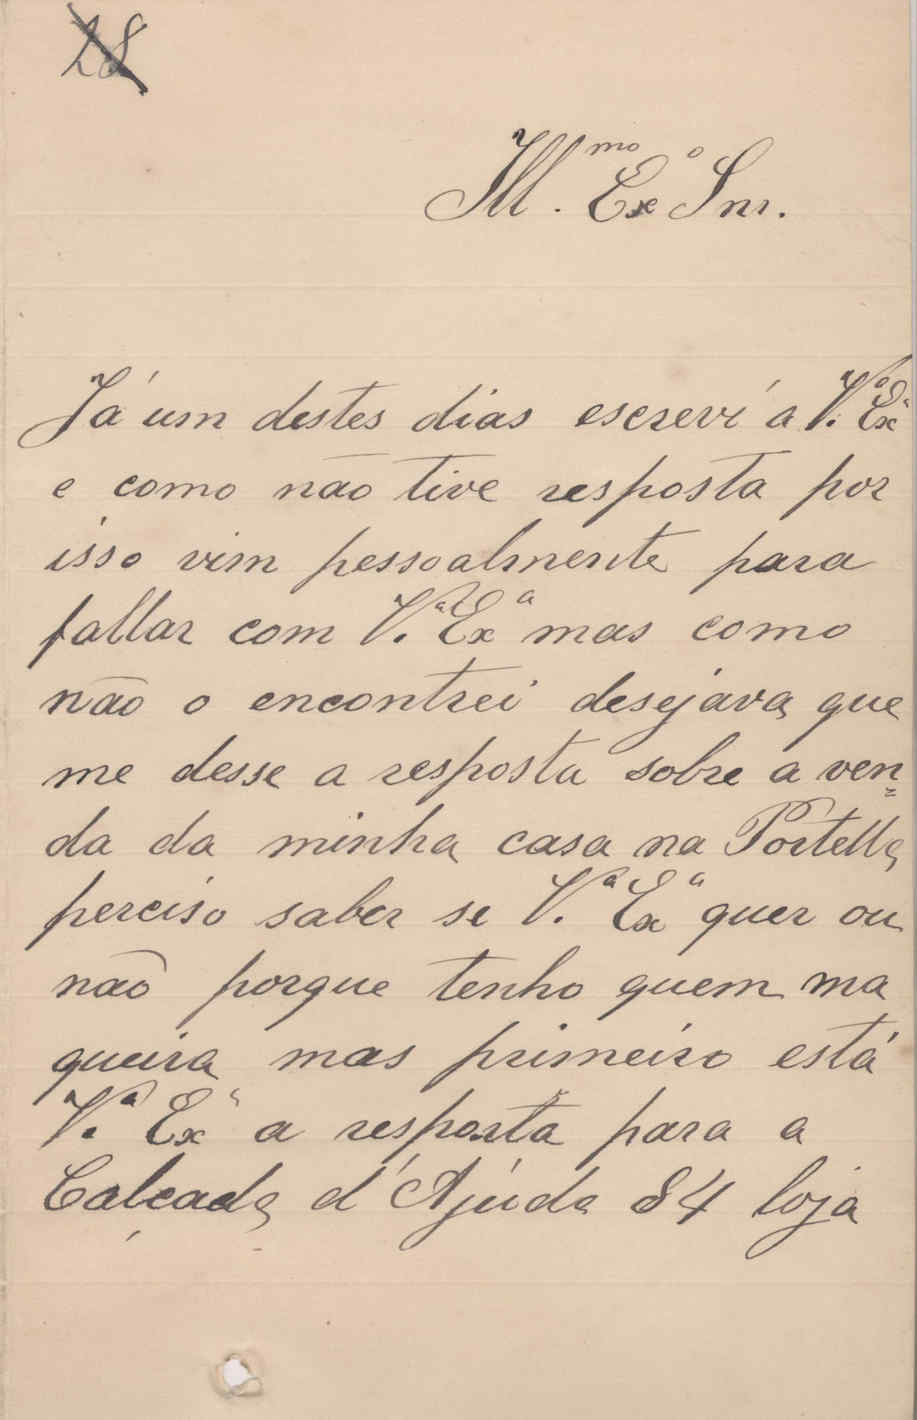 28
Ill.mo Exo Snr.
Já um destes dias escreví a V.a Exa
e como não tive resposta por
isso vim pessoalmente para
fallar com V.a Exa mas como
não o encontrei desejava que
me desse a resposta sobre a ven=
da da minha casa na Portella
perciso saber se V.a Exa quer ou
não porque tenho quem ma
queira mas primeiro está
V.a Exa a resposta para a
Calçada d'Ajuda 84 loja